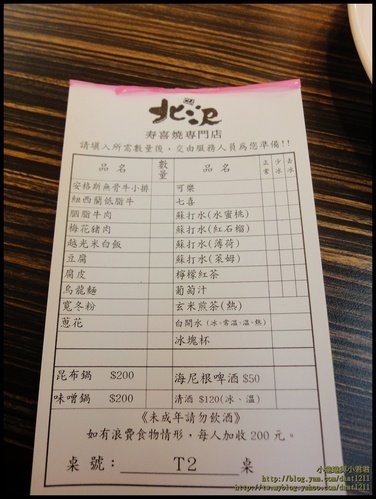 北澤
寿喜燒專門店
請填入所需數量後，交由服務人員為您準備!!
品名 數量 品名 正常 少冰 去冰
安格斯無骨牛小排 可樂
紐西蘭低脂牛 七喜
胭脂牛肉 蘇打水(水蜜桃)
梅花豬肉 蘇打水(紅石榴)
越光米白飯 蘇打水(薄荷)
豆腐 蘇打水(萊姆)
腐皮 檸檬紅茶
烏龍麵 葡萄汁
寬冬粉 玄米煎茶(熱)
蔥花 白開水(冰、常溫、溫、熱)
冰塊杯
昆布鍋 $200 海尼根啤酒 $50
味噌鍋 $200 清酒 $120(冰、溫)
《未成年請勿飲酒》
如有浪費食物情形，每人加收 200 元。
桌號： T2 桌
http://blog.yam.com/dhat1211
http://tw.myblog.yahoo.com/dhat1211